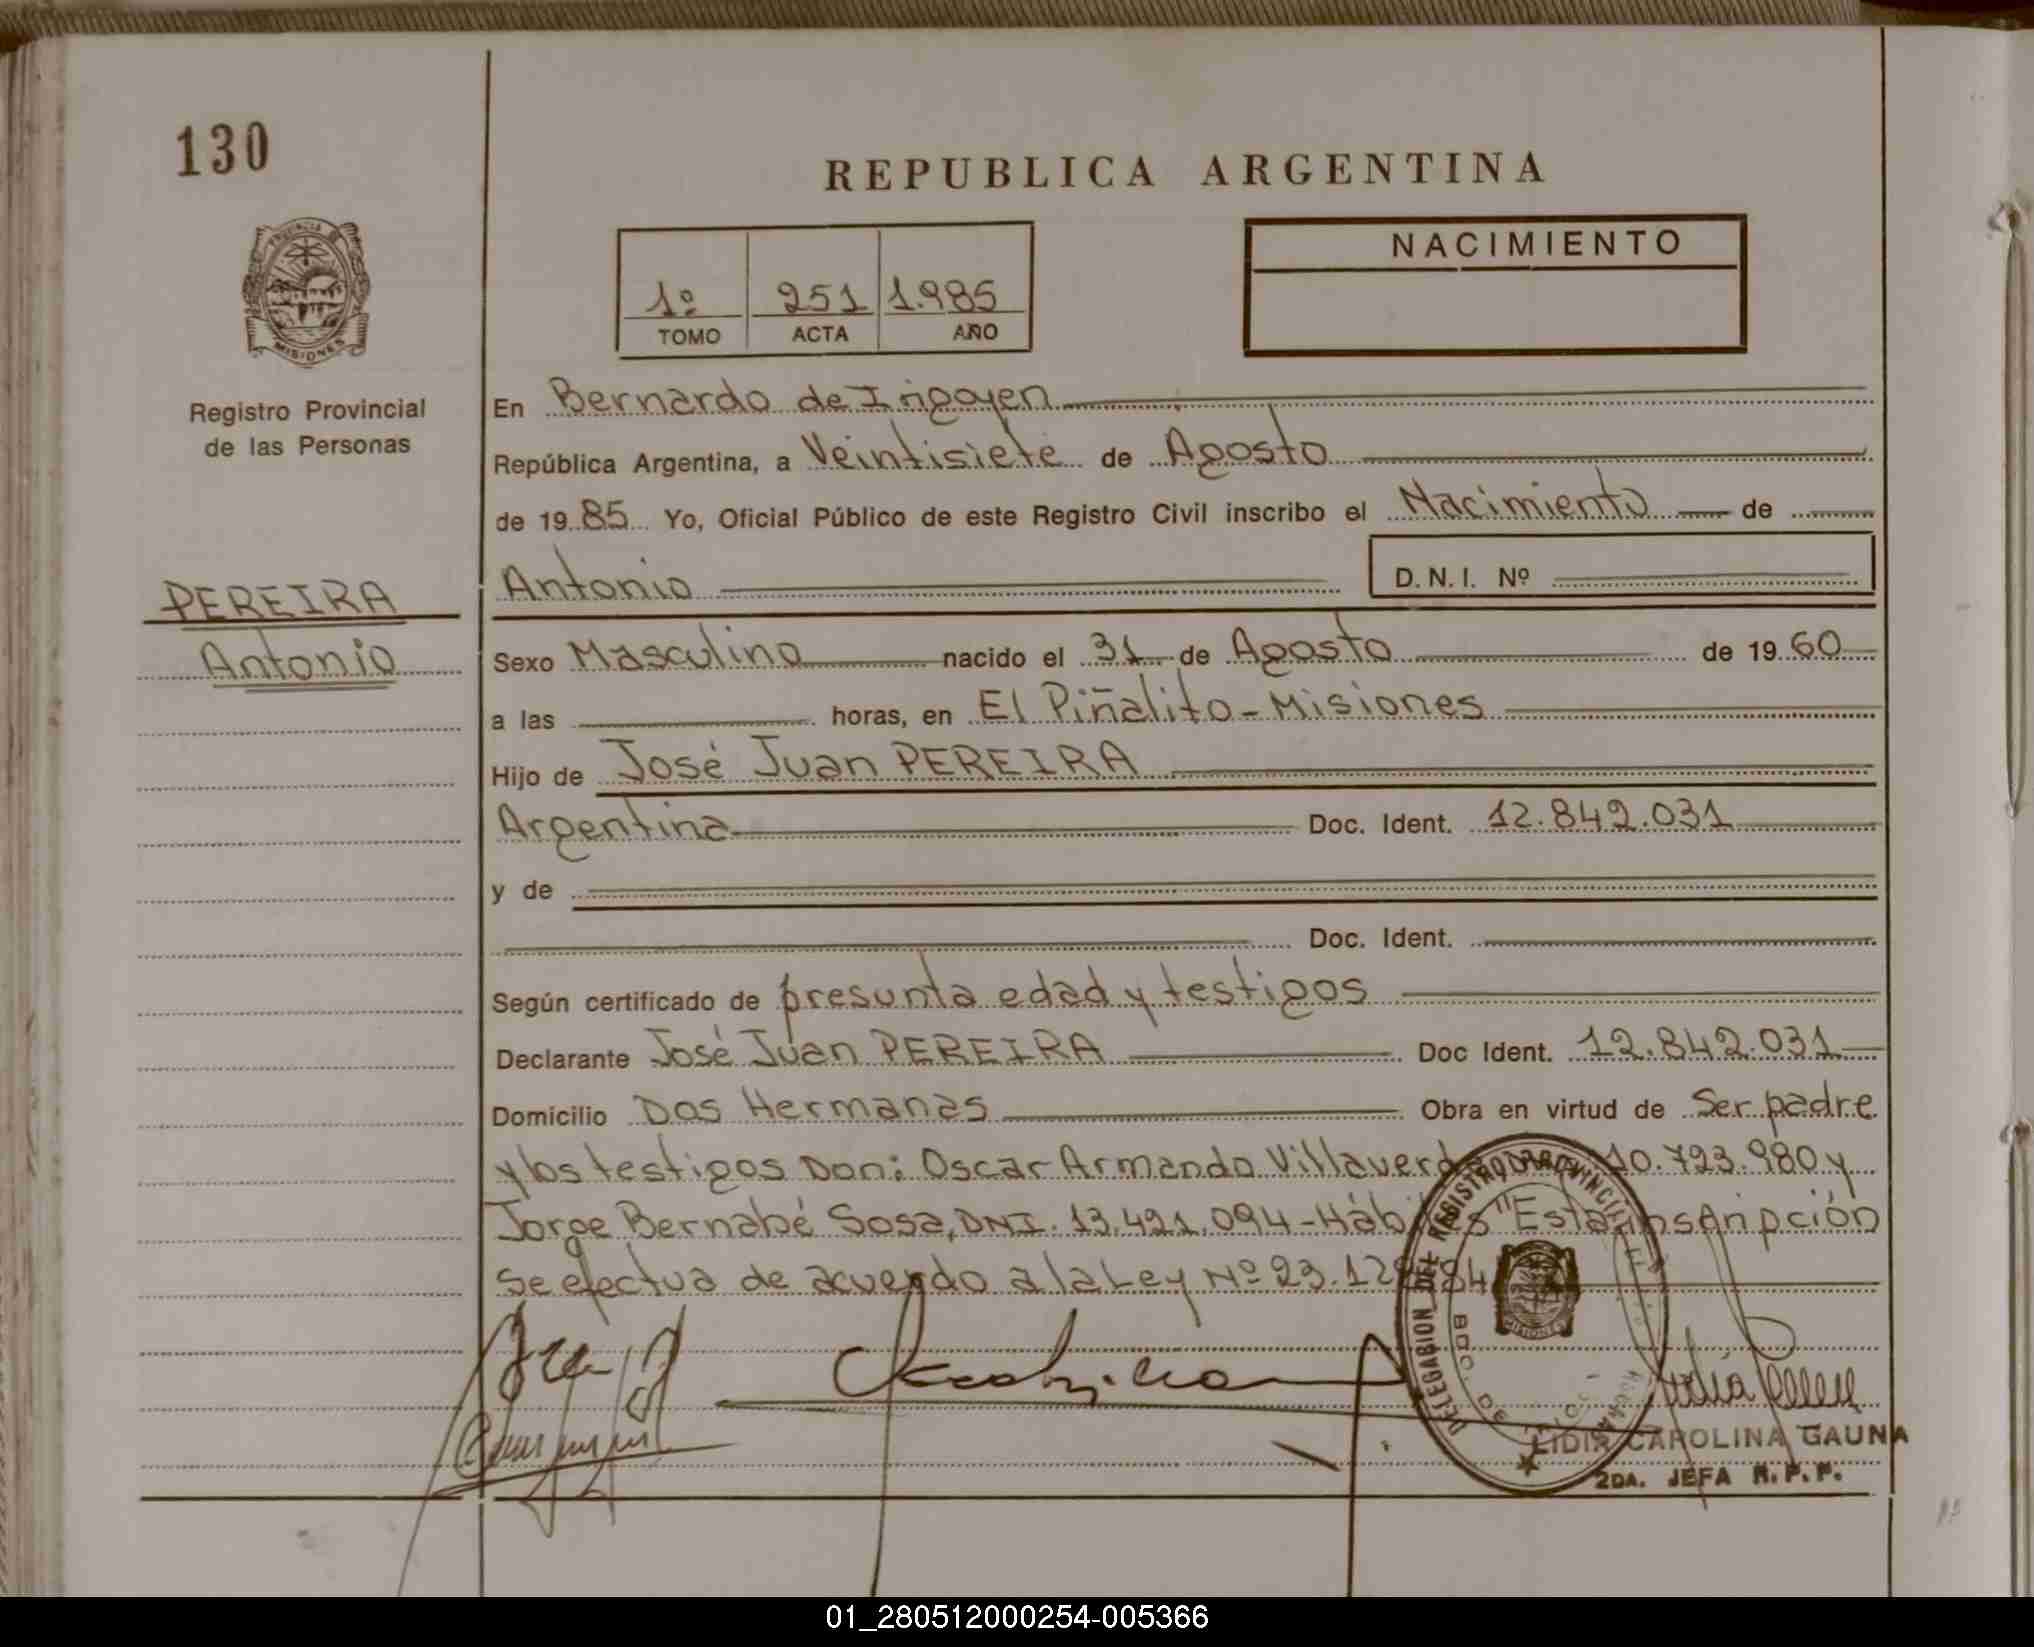 130
REPUBLICA ARGENTINA
PROVINCIA DE
MISIONES
Registro Provincial
de las Personas
1º 251 1.985
TOMO ACTA AÑO
NACIMIENTO
En Bernardo de Irigoyen
República Argentina, a Veintisiete de Agosto
de 1985 Yo, Oficial Público de este Registro Civil inscribo el Nacimiento de
PEREIRA
Antonio
Antonio D.N.I. Nº
Sexo Masculino nacido el 31 de Agosto de 1960
a las horas, en El Piñalito - Misiones
Hijo de José Juan PEREIRA
Argentina Doc. Ident. 12.842.031
y de
Doc. Ident.
Según certificado de presunta edad y testigos
Declarante José Juan PEREIRA Doc Ident. 12.842.031
Domicilio Dos Hermanas Obra en virtud de Ser padre
y los testigos Don: Oscar Armando Villaverde 10.723.980 y
Jorge Bernabé Sosa, DNI. 13.421.094 - Hábiles "Esta inscripción
se efectua de acuerdo a la Ley Nº 23.128/84
DELEGACION DEL REGISTRO PROVINCIAL
BDO. DE
MISIONES
LIDIA CAROLINA GAUNA
2DA. JEFA R.P.P.
01_280512000254-005366